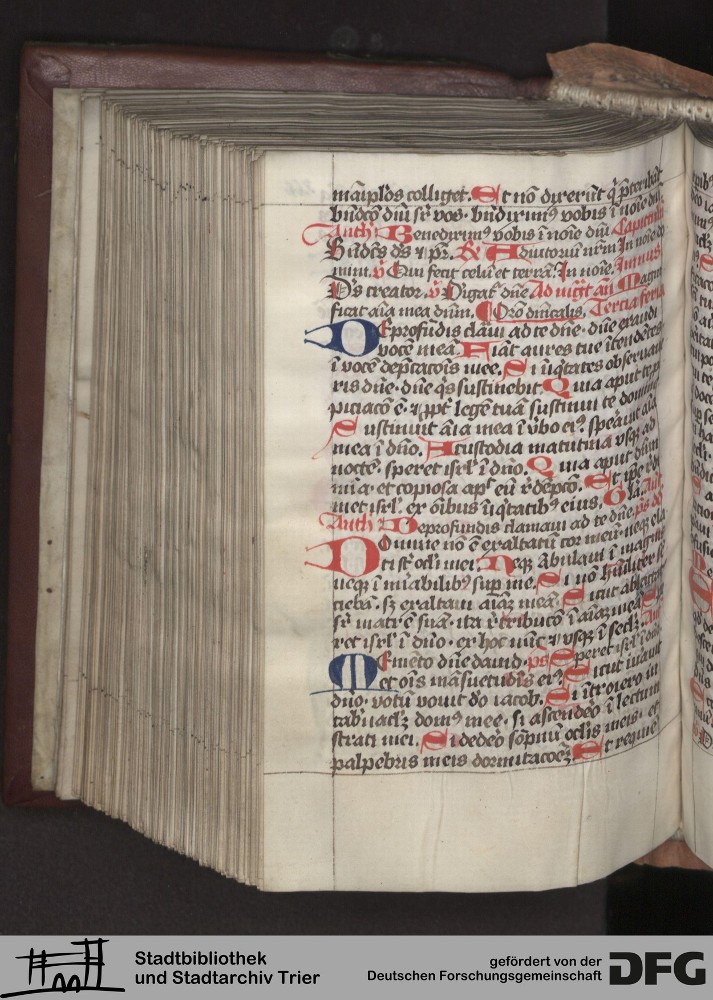 māiplos colliget. Et nō dixerūt q̄ p̄teribāt
bn̄dco dn̄i sr̄ vos. bn̄dixim9 vobis ī noīe dn̄i
Anth Benedixim9 vobis ī noīe dn̄i Capitulū
Bn̄dcs ds ⁊ pr̄. Rx Adiutoriū nr̄m In noīe do
mini. v̄ Qui fecit celū et terrā. In noīe.
Ds creator. v̄ Dirigat dn̄e Ad mgt̄ an̄ Magni
ficat aīa mea dnm. Oro dn̄icalis. Tercia feria
De profūdis clāui ad te dn̄e. dn̄e exaudi
vocē meā. Fiāt aures tue ītendētes
ī vocē dep̄cacōis mee. Si īiq̄tates obseruaue
ris dn̄e. dn̄e q̄s sustinebit. Quia aput te
piciacō ē. ⁊ ppt̄ legē tuā sustinui te domine
Sustinuit aīa mea ī v̄bo ei9. sperauit aīa
mea ī dn̄o. A custodia matutina vsq̄ ad
noctē. speret isrl̄ ī dn̄o. Quia aput dnm
mīa. et copiosa ap̄ eū r̄dēpcō. Et ip̄e rēdi
met isrl̄. ex oībus īiq̄tatib9 eius. Glā. Anth
Anth De profundis clamaui ad te dn̄e. ps
Domine nō ē exaltatū cor meū. neq̄ ela
ti st̄ ocl̄i mei. Neq̄ ābulaui ī magnis
neq̄ ī mirabilib9 sup me. Si nō hūiliter se
ciebā. sz exaltaui aīaz meā. Sicut ablactat9
sr̄ matrē suā. ita r̄tribucō ī aīaz meā. Spe
ret isrl̄ ī dn̄o. ex hoc nūc ⁊ vsq̄ ī seclz. Anth
Speret isrl̄ ī dn̄o
Memēto dn̄e dauid. ps
et oīs māsuetudīs ei9. Sicut iurauit
dn̄o. votū vouit do iacob. Si ītroiero in
tab̄naclz dom9 mee. si ascendeo ī lectum
strati mei. Si dedeo sōpnū ocl̄is meis. et
palpebris meis dormitacoēz. Et requiē
Stadtbibliothek
und Stadtarchiv Trier
gefördert von der
Deutschen Forschungsgemeinschaft
DFG